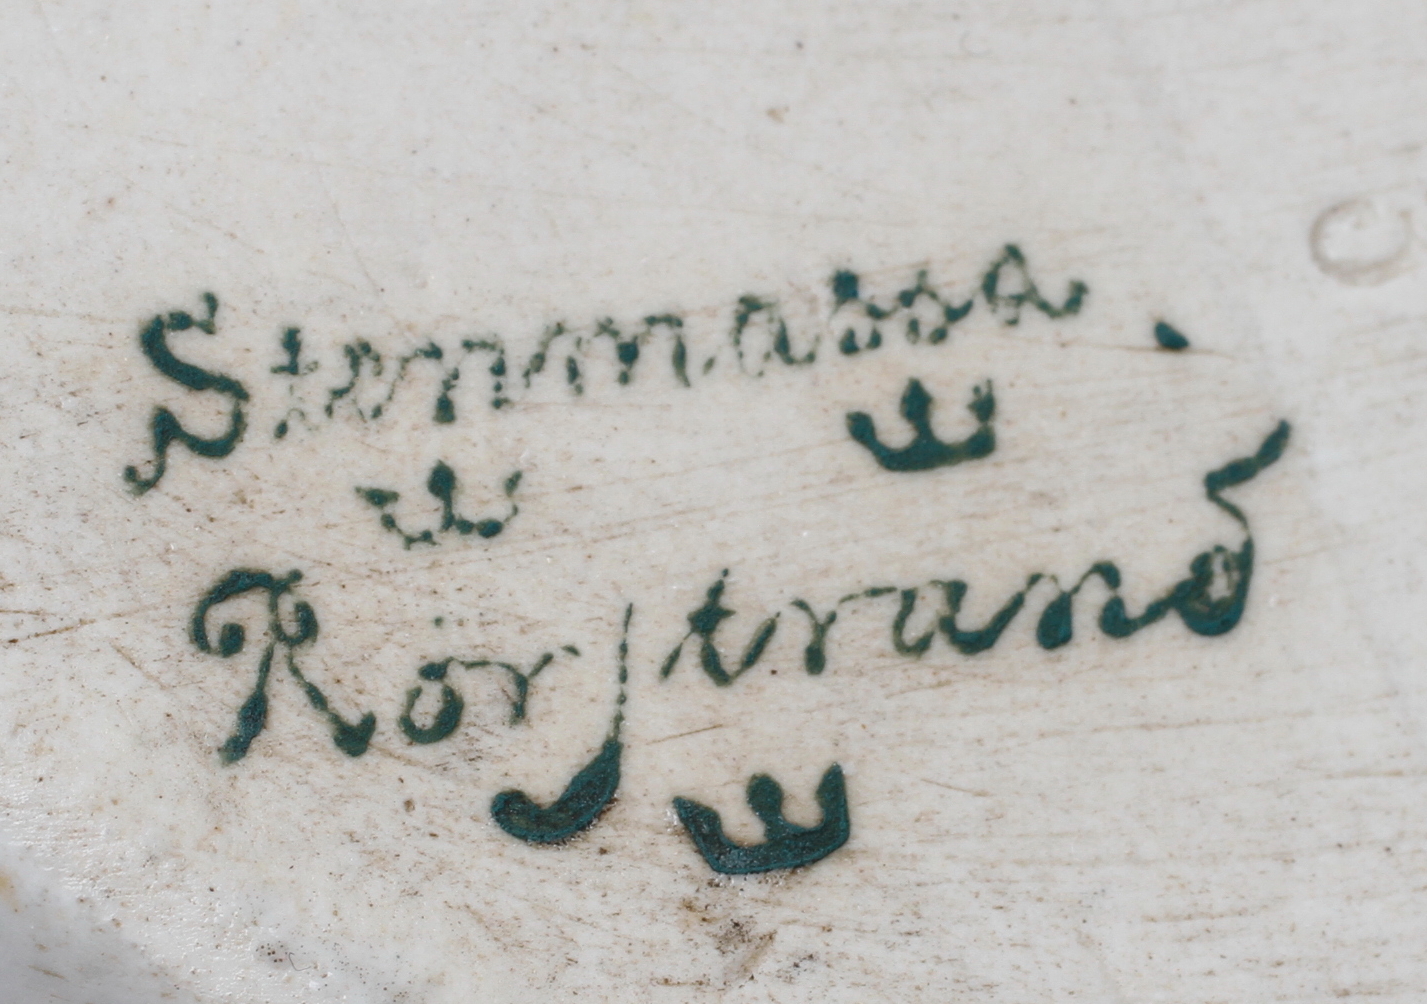 Stenmassa
Rörstrand